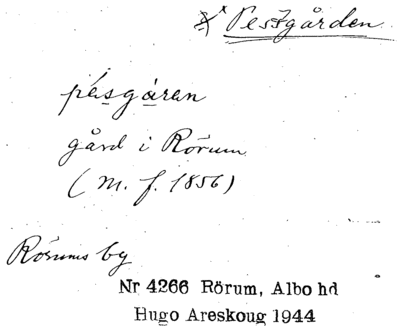 Pestgården
pásgáren
gård i Rörum
(m. f. 1856)
Rörums by
Nr 4266 Rörum, Albo hd
Hugo Areskoug 1944